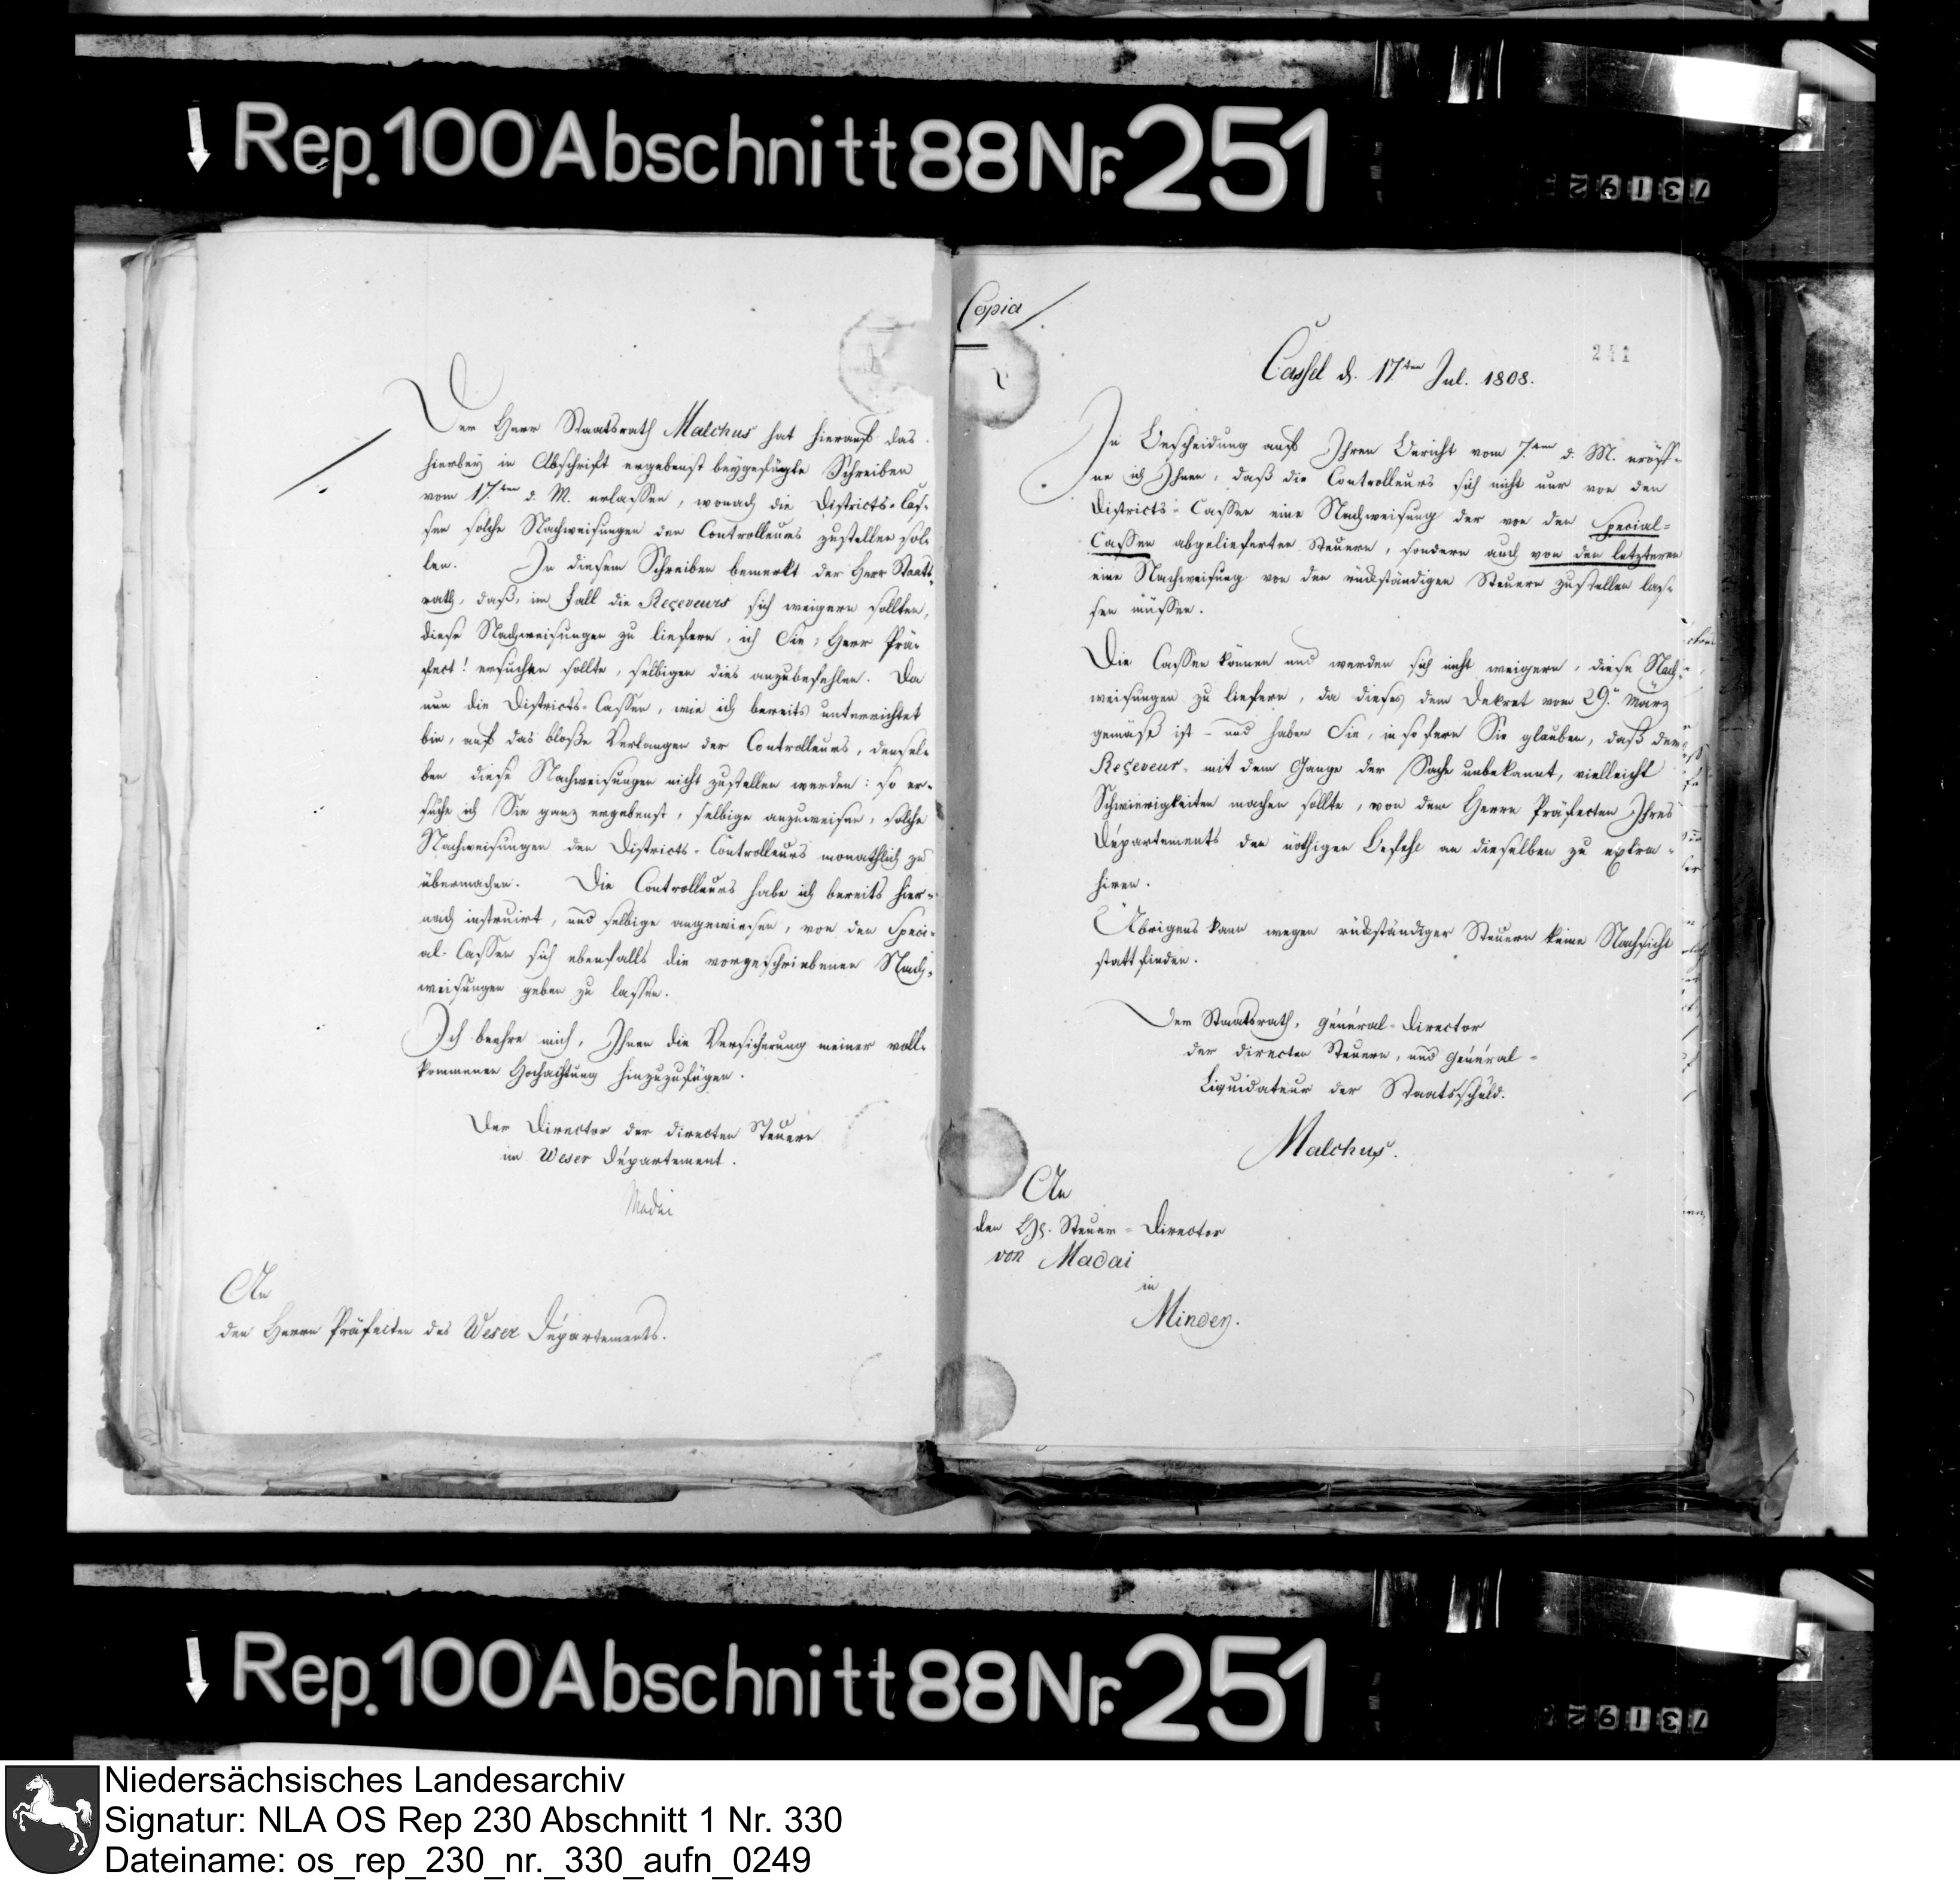 Rep. 100 Abschnitt 88 Nr. 251
Der Herr Staatsrath Malchus hat hierauf das
hierbey in Abschrift ergebenst beygefügte Schreiben
vom 17ten d. M. erlassen, wonach die Districts-Cas-
sen solche Nachweisungen den Controlleurs zustellen sol-
len. In diesem Schreiben bemerkt der Herr Staats-
rath, daß, im Fall die Reçeveurs sich weigern sollten,
diese Nachweisungen zu liefern, ich Sie, Herr Prä-
fect! ersuchen sollte, selbigen dies anzubefehlen. Da
nun die Districts-Cassen, wie ich bereits unterrichtet
bin, auf das bloße Verlangen der Controlleurs, densel-
ben diese Nachweisungen nicht zustellen werden: so er-
suche ich Sie ganz ergebenst, selbige anzuweisen, solche
Nachweisungen den Districts-Controlleurs monathlich zu
übermachen. Die Controlleurs habe ich bereits hier-
nach instruirt, und selbige angewiesen, von den Speci-
al-Cassen sich ebenfalls die vorgeschriebenen Nach-
weisungen geben zu lassen.
Ich beehre mich, Ihnen die Versicherung meiner voll-
kommenen Hochachtung hinzuzufügen.
Der Director der directen Steuern
im Weser Département.
Madai
An
den Herrn Präfecten des Weser Départements.
Copia
241
Cassel d. 17ten Jul. 1808.
In Bescheidung auf Ihren Bericht vom 7ten d. M. eröff-
ne ich Ihnen, daß die Controlleurs sich nicht nur von den
Districts-Cassen eine Nachweisung der von den Special-
Cassen abgelieferten Steuern, sondern auch von den letzteren
eine Nachweisung von den rückständigen Steuern zustellen las-
sen müssen.
Die Cassen können und werden sich nicht weigern, diese Nach-
weisungen zu liefern, da dieses dem Dekret vom 29n März
gemäß ist - und haben Sie, in so fern Sie glauben, daß der
Reçeveur, mit dem Gange der Sache unbekannt, vielleicht
Schwierigkeiten machen sollte, von dem Herrn Präfecten Ihres
Départements den nöthigen Befehl an dieselben zu extra-
hiren.
Übrigens kann wegen rückständiger Steuern keine Nachsicht
statt finden.
Der Staatsrath, Général-Director
der directen Steuern, und Général-
Liquidateur der Staatsschuld.
Malchus.
An
den H. Steuer-Director
von Madai
in
Minden.
Rep. 100 Abschnitt 88 Nr. 251
Niedersächsisches Landesarchiv
Signatur: NLA OS Rep 230 Abschnitt 1 Nr. 330
Dateiname: os_rep_230_nr._330_aufn_0249